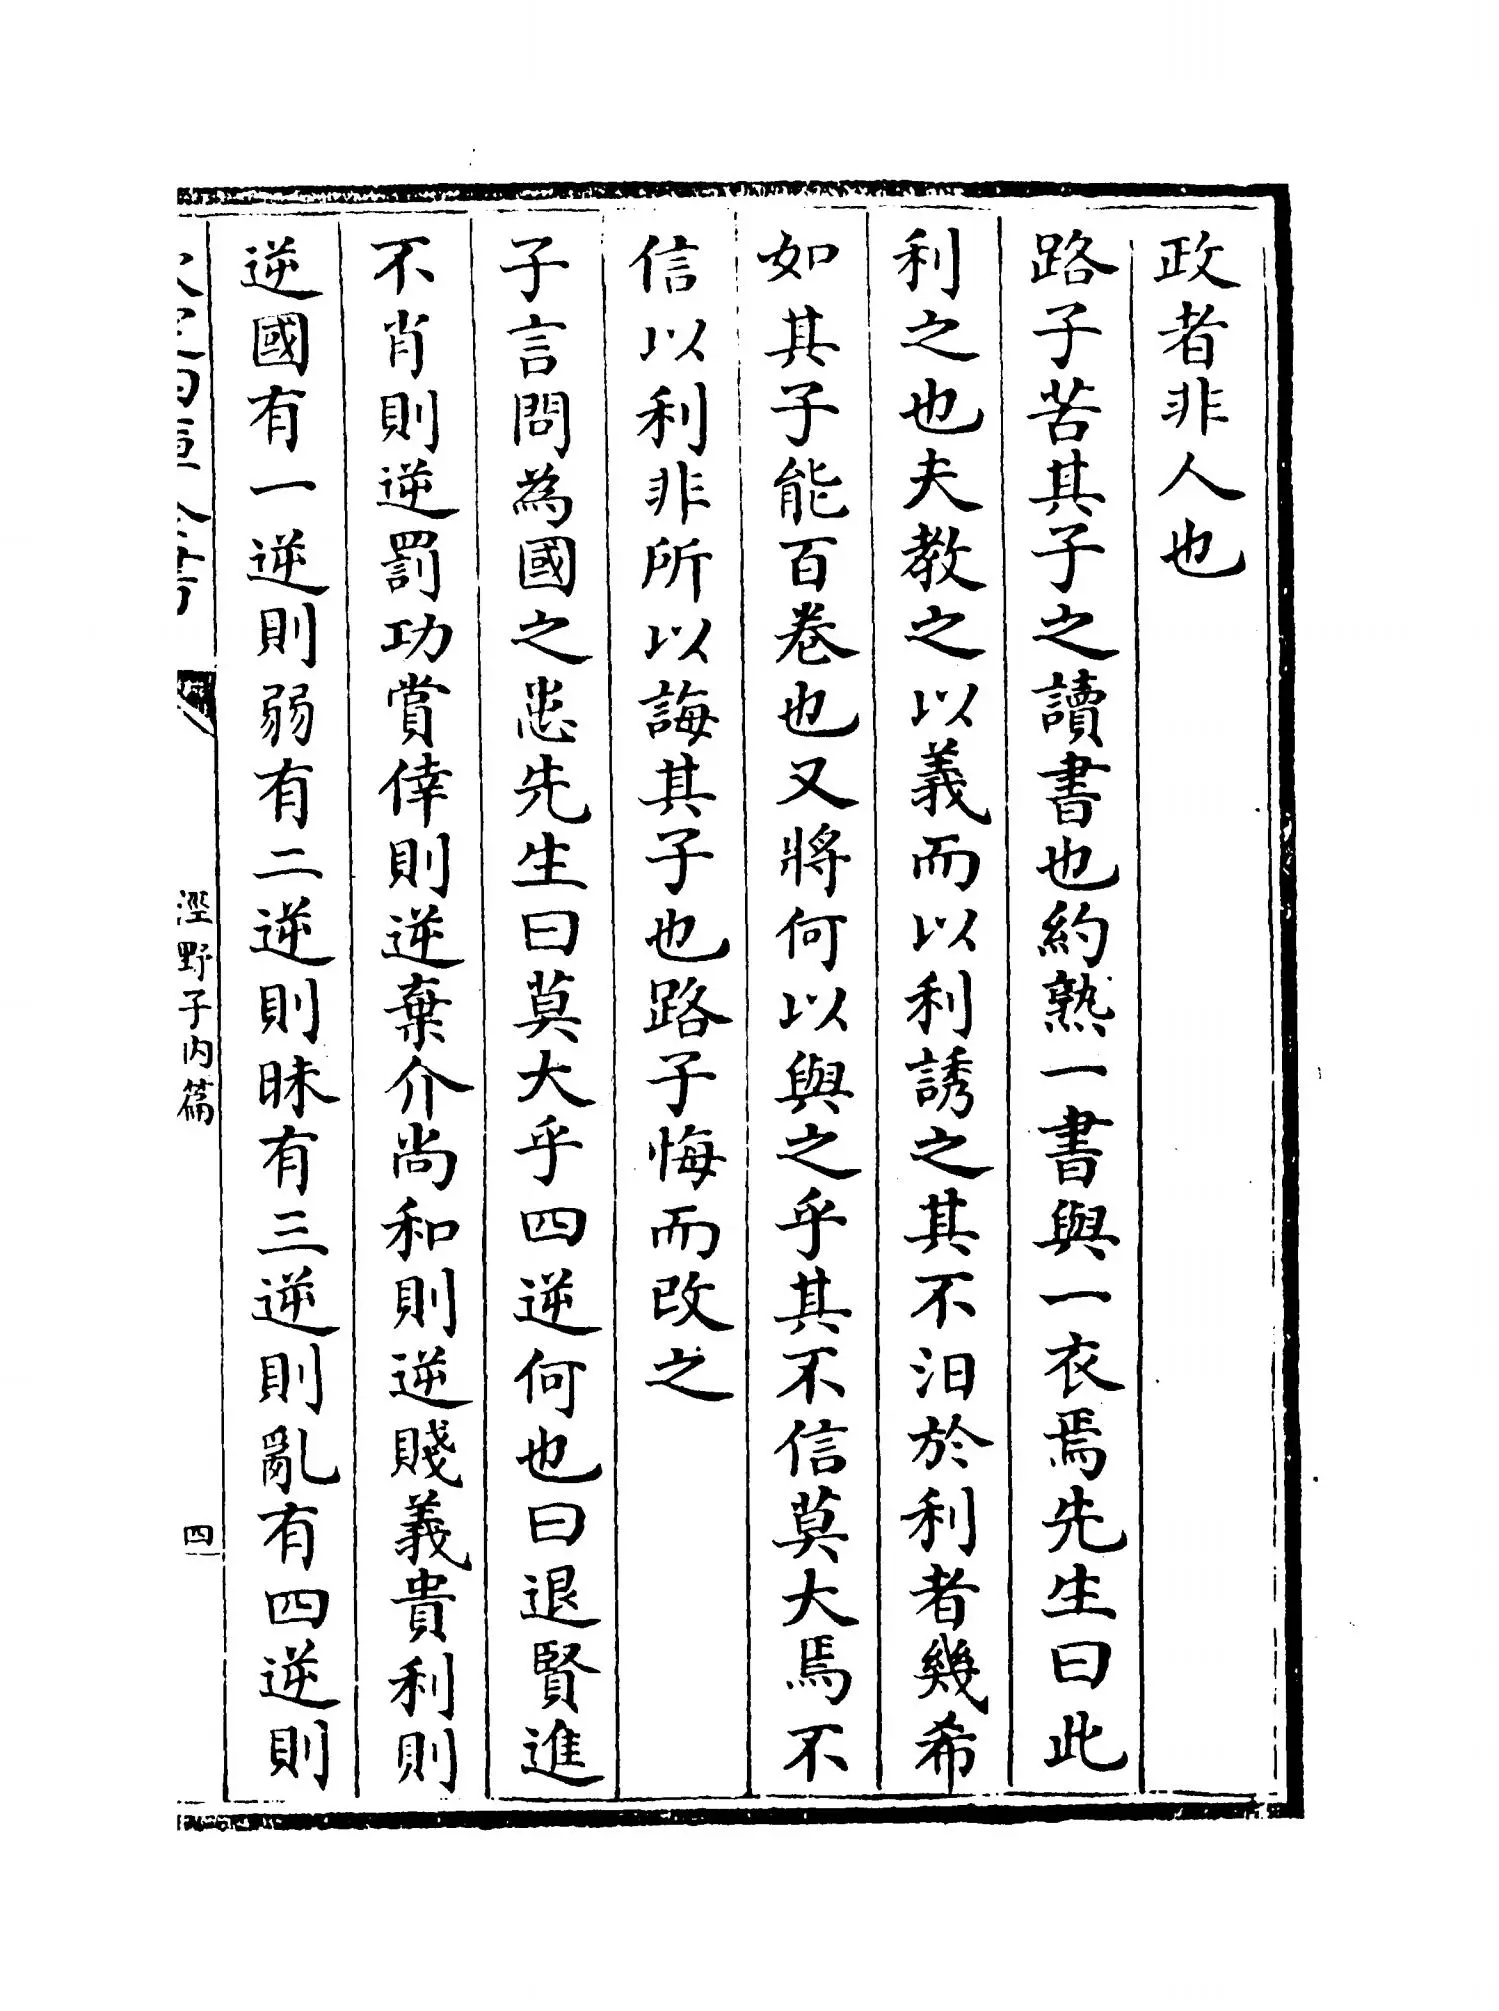 政者非人也
路子苦其子之讀書也約熟一書與一衣焉先生曰此
利之也夫教之以義而以利誘之其不汨於利者幾希
如其子能百卷也又將何以與之乎其不信莫大焉不
信以利非所以誨其子也路子悔而改之
子言問為國之患先生曰莫大乎四逆何也曰退賢進
不肖則逆罰功賞倖則逆棄介尚和則逆賤義貴利則
逆國有一逆則弱有二逆則昧有三逆則亂有四逆則
涇野子内篇
四